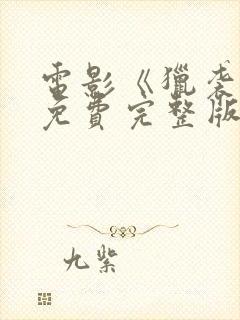 電影《獵袭
免費完整版
九紫